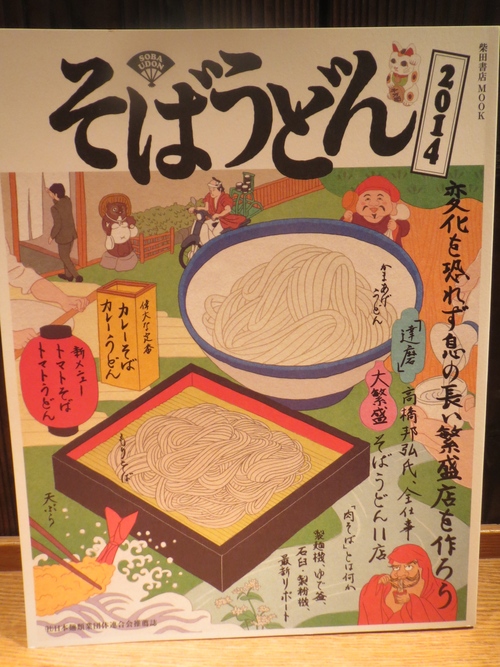 柴田書店MOOK
SOBA
UDON
そばうどん
2014
変化を恐れず息の長い繁盛店を作ろう
「達磨」
高橋邦弘氏、全仕事
大繁盛
そばうどん11店
「肉そば」とは何か
製麺機、ゆで釜、
石臼・製粉機、
最新リポート
かまあげ
うどん
偉大な定番
カレーそば
カレーうどん
新メニュー
トマトそば
トマトうどん
もりそば
天ぷら
㈳日本麺類業団体連合会推薦誌